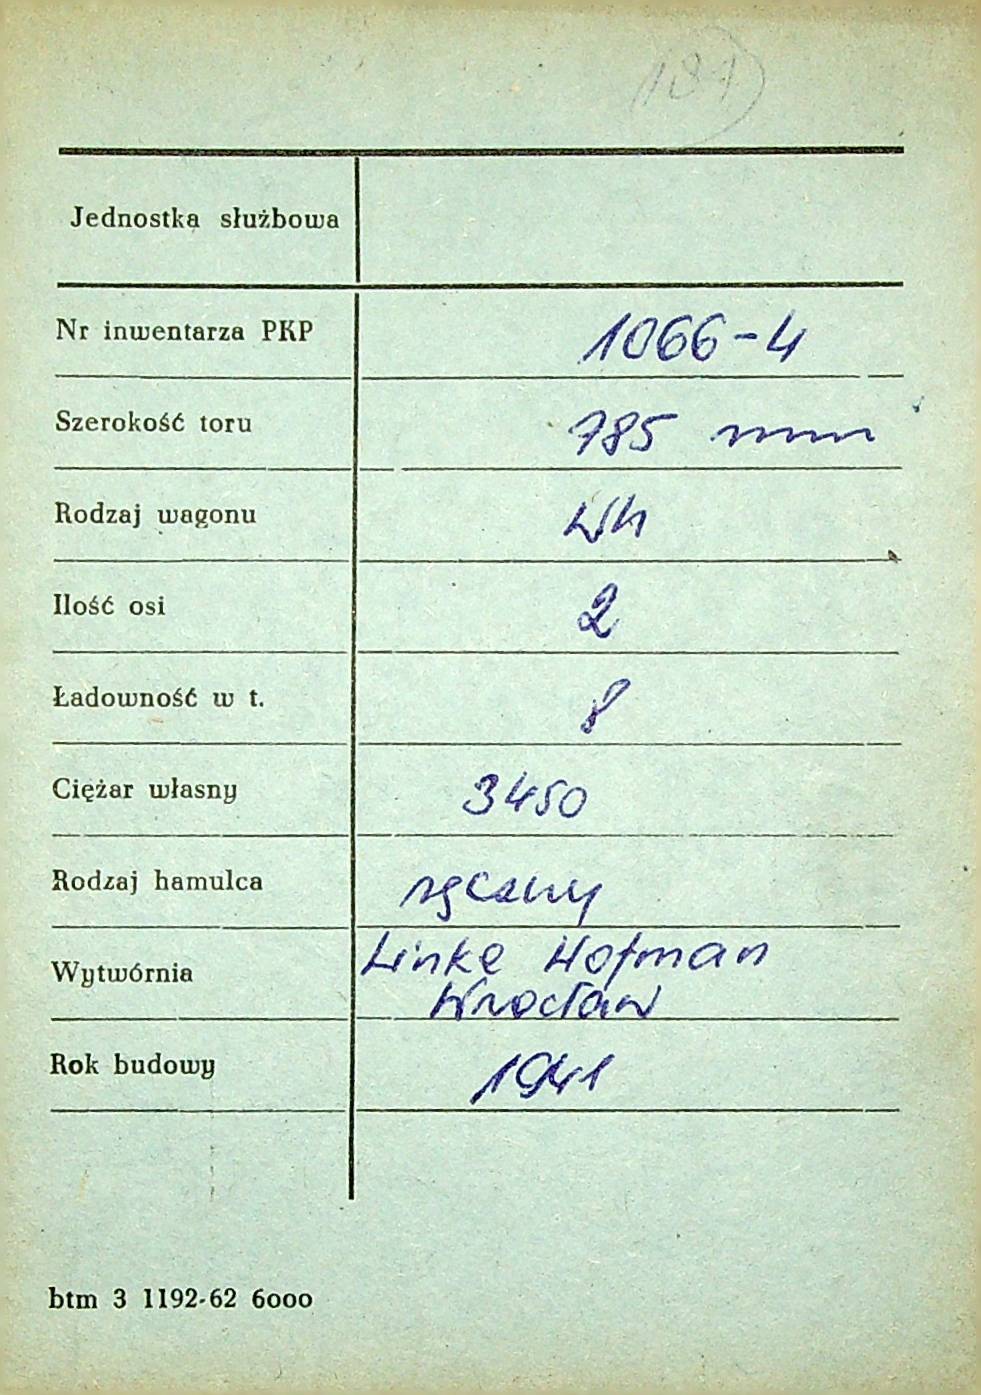 181
Jednostka służbowa
Nr inwentarza PKP 1066-4
Szerokość toru 785 mm
Rodzaj wagonu Wh
Ilość osi 2
Ładowność w t. 8
Ciężar własny 3450
Rodzaj hamulca ręczny
Wytwórnia Linke Hofman
Wrocław
Rok budowy 1941
btm 3 1192-62 6000